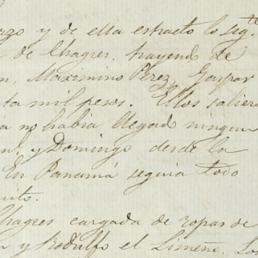 rzo y de ella extracto lo sigte
de Chagres, trayend de
n, Maximino Perez, Gaspar
ta mil pesos. Ellos saliero
a no habia llegado ningun
n y Domingo desde la
En Panamá seguia todo
nito.
Chagres cargada de ropas de
n y Rodulfo el Limeñ. Los